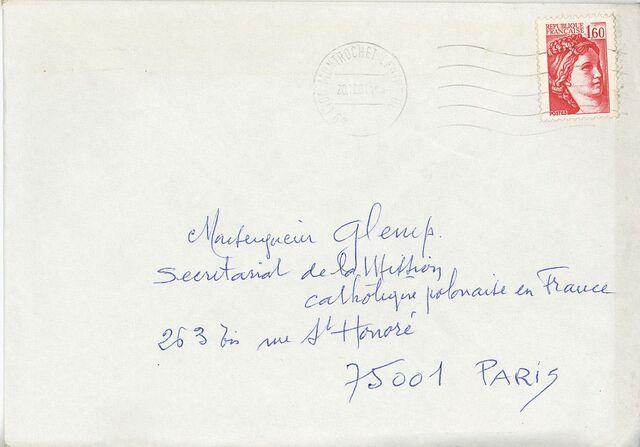 REPUBLIQUE
FRANCAISE 1,60
POSTES
Monseigneur Glemp.
Secretariat de la Mission
catholique polonaise en France
263 bis rue St Honoré
75001 PARIS